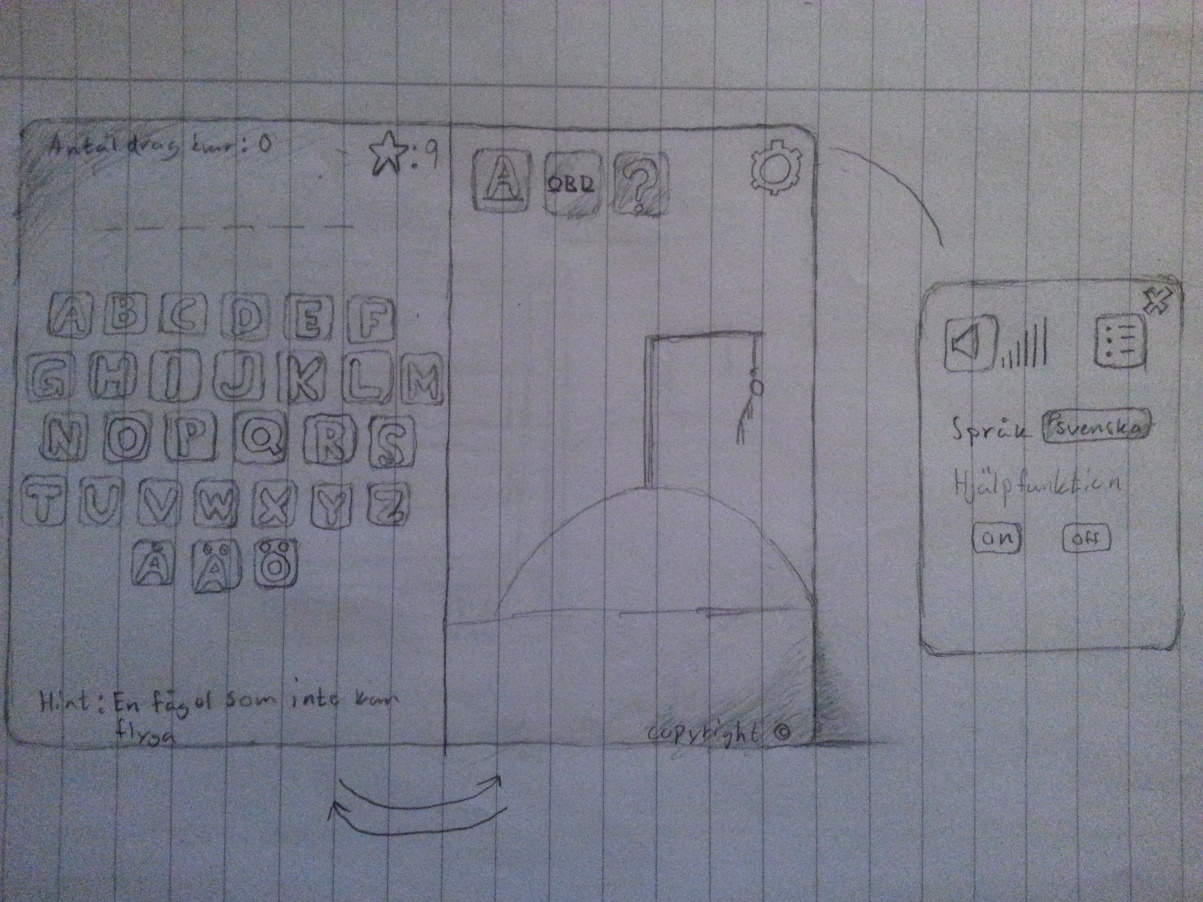 Antal drag kvar: 0
:9
A OBD ?
A B C D E F
G H I J K L M
N O P Q R S
T U V W X Y Z
Å Ä Ö
Hint: En fågel som inte kan
flyga
copyright ©
Språk svenska
Hjälpfunktion
on off